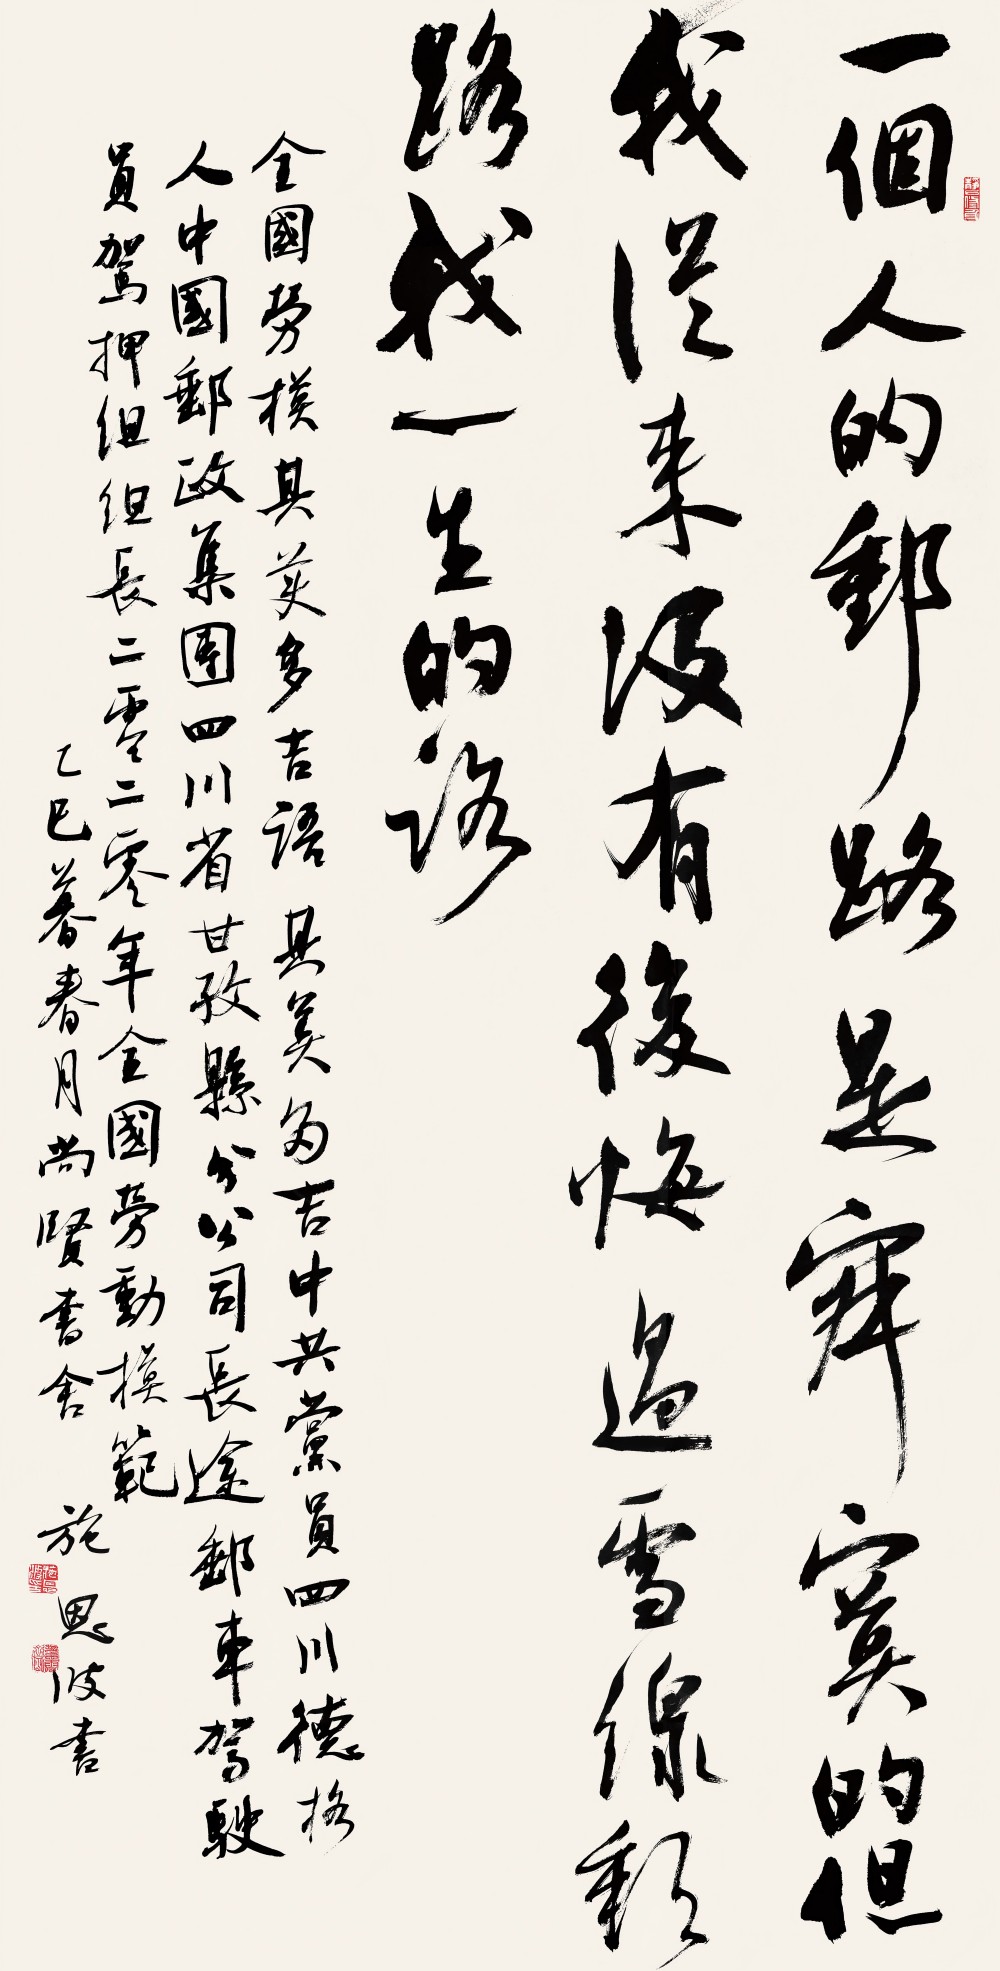 一個人的郵路是寂寞的但
我從来没有後悔過雪線郵
路我一生的路
全國勞模其美多吉語 其美多吉中共黨員四川德格
人中國郵政集團四川省甘孜縣分公司長途郵車駕駛
員駕押組組長二零二零年全國勞動模範
乙巳暮春月尚賢書舍 施恩波書